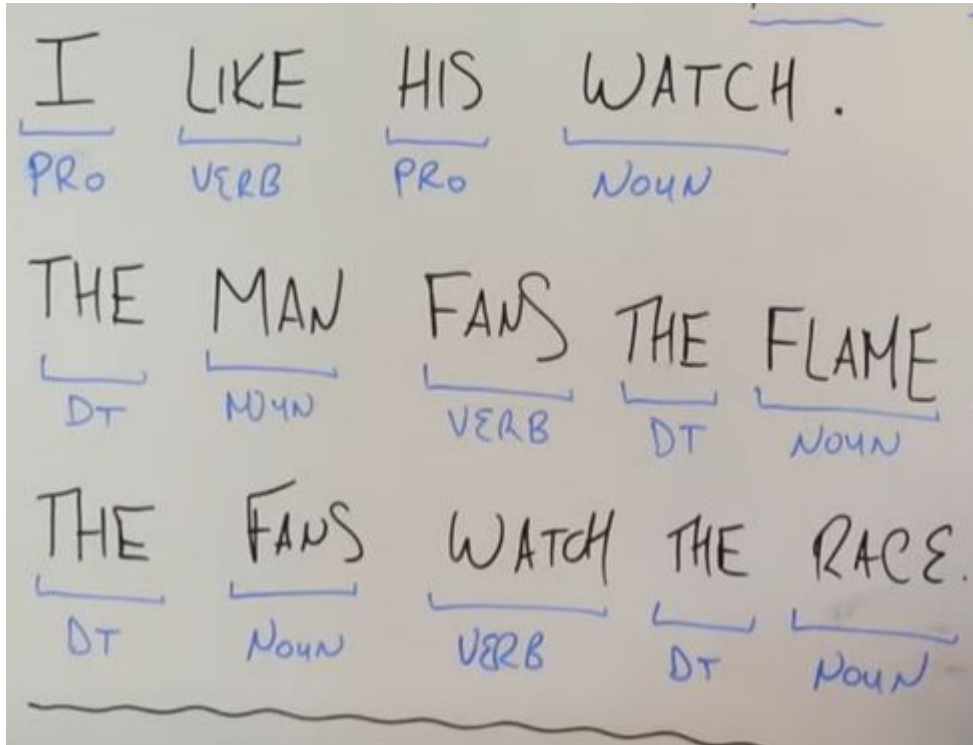 I LIKE HIS WATCH.
PRO VERB PRO NOUN
THE MAN FANS THE FLAME
DT NOUN VERB DT NOUN
THE FANS WATCH THE RACE.
DT NOUN VERB DT NOUN